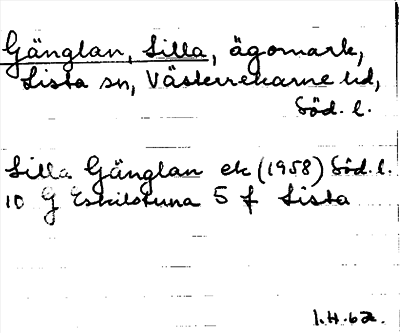 Gänglan, Lilla, ägomark,
Lista sn, Västerrekarne hd,
Söd. l.
Lilla Gänglan ek (1958) Söd. l.
10 G Eskilstuna 5 f Lista
I.H. 62.